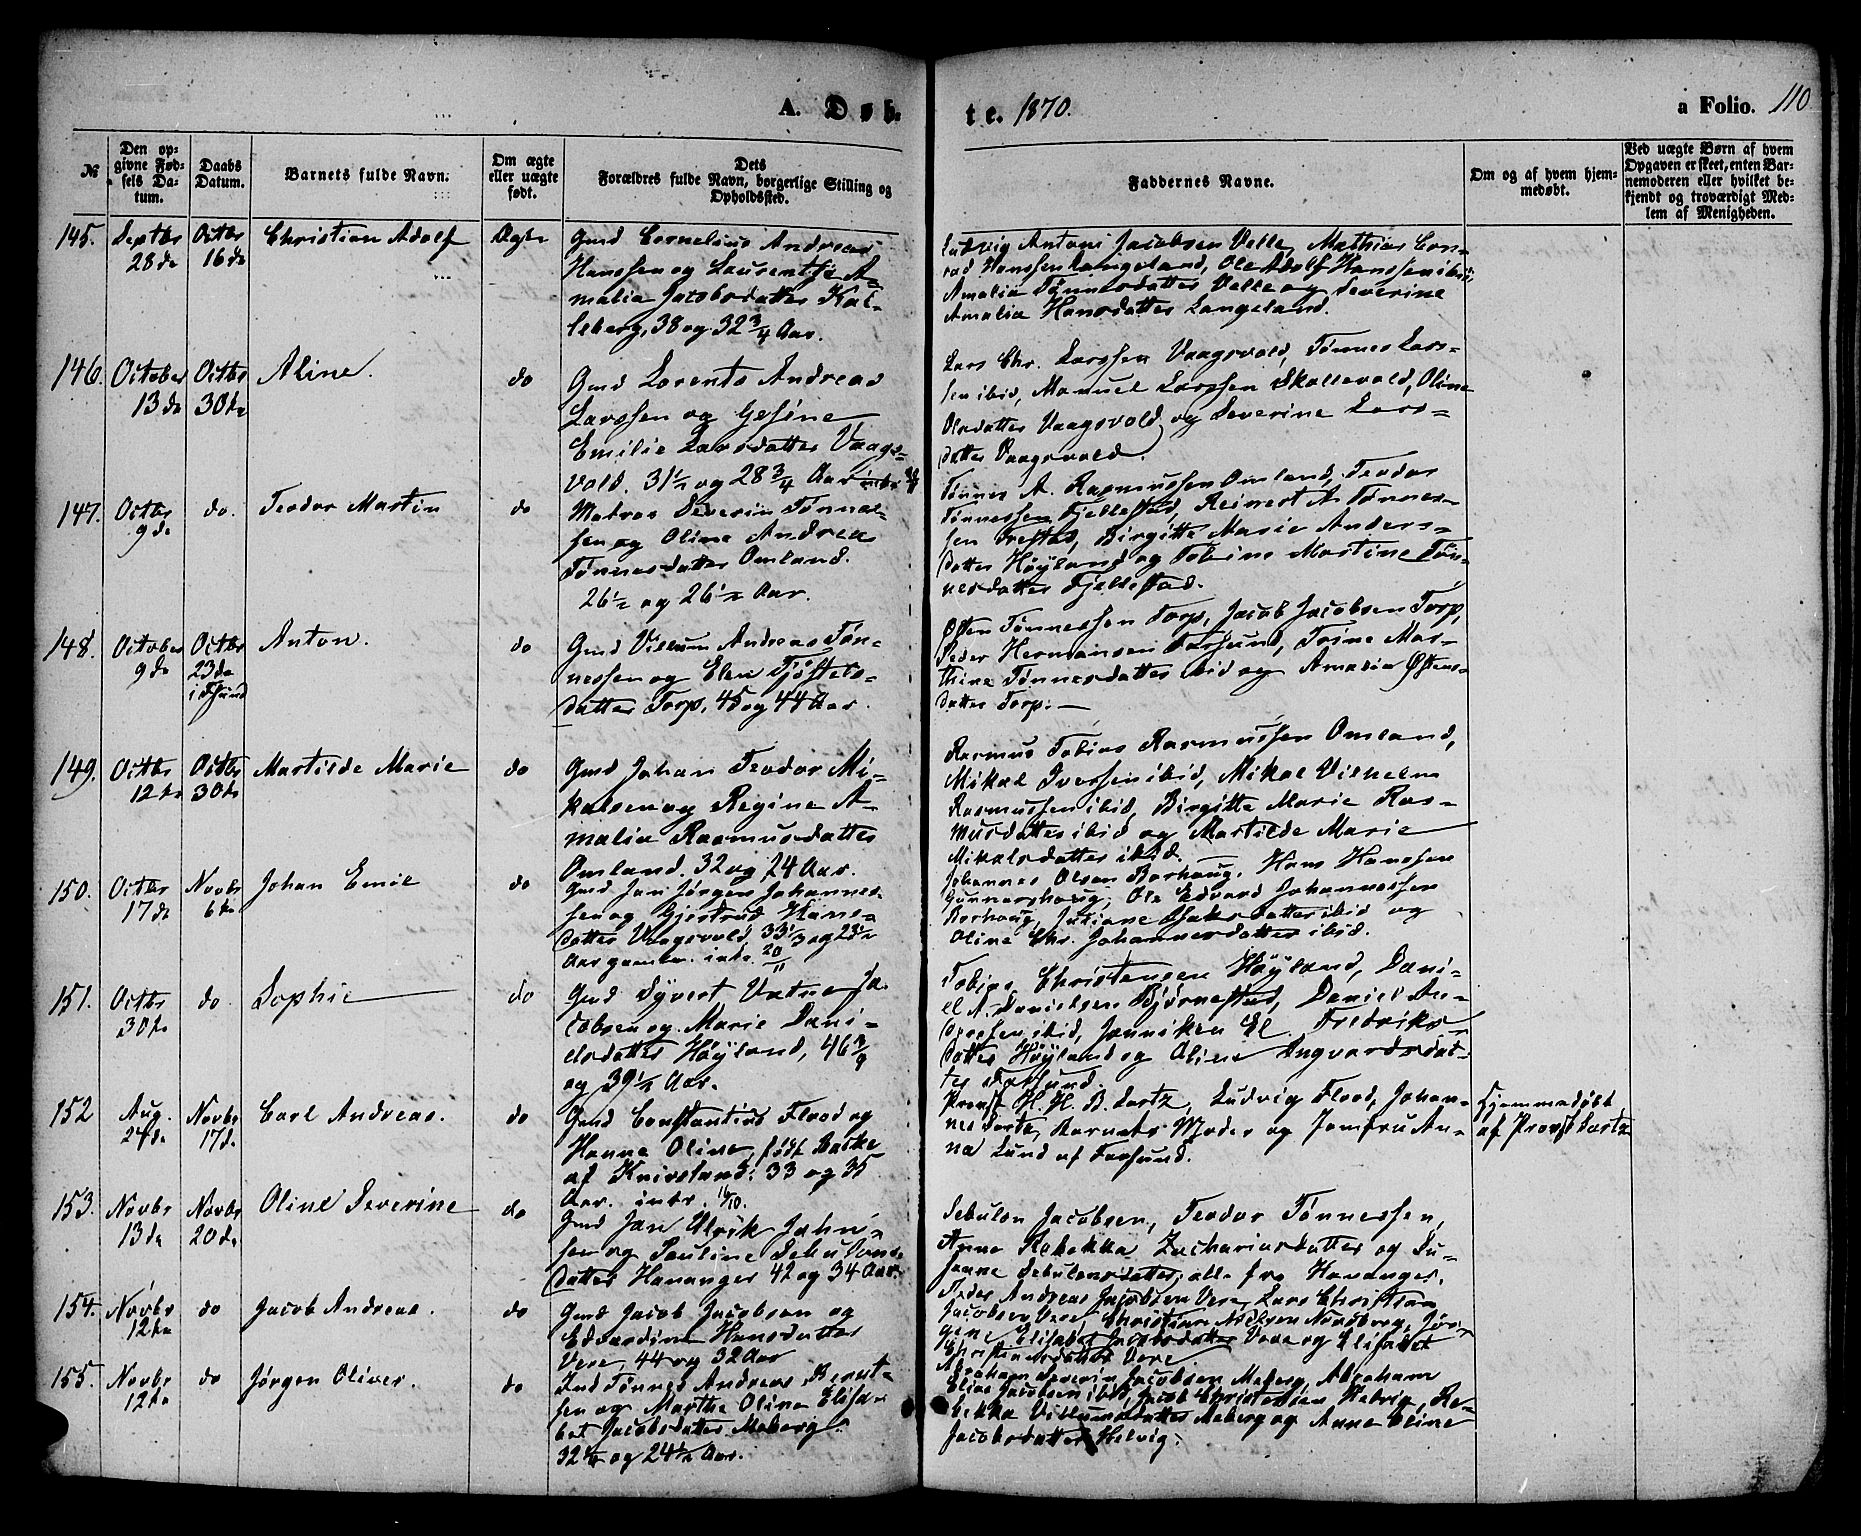 A. Døb-
te. 1870.
a Folio. 110
№
Den op-
givne Fød-
sels Da-
tum.
Daabs
Datum.
Barnets fulde Navn.
Om ægte
eller uægte
født.
Dets
Forældres fulde Navn, borgerlige Stilling og
Opholdssted.
Faddernes Navne.
Om og af hvem hjem-
medøbt.
Ved uægte Børn af hvem
Opgaven er skeet, enten Bar-
nemoderen eller hvilket be-
kjendt og troværdigt Med-
lem af Menigheden.
145. Septbr Octbr Christian Adolf Ægte
28de 16de
Gmd Cornelius Andreas
Hanssen og Laurentse A-
malia Jacobsdatter Kal-
leberg, 38 og 32 3/4 Aar.
Ludvig Antoni Jacobsen Velle, Mathias Con-
rad Hanssen Langeland, Ole Adolf Hanssen ibid,
Amalia Tønnesdatter Velle og Severine
Amalia Hansdatter Langeland.
146. October Octbr Aline. do
13de 30te
Gmd Lorents Andreas
Larssen og Gesine
Emilie Larsdatter Vaags-
vold. 31 1/2 og 28 3/4 Aar
Lars Chr. Larssen Vaagsvold, Tønnes Lars-
sen ibid, Manuel Larssen Skollevold, Oline
Olsdatter Vaagsvold og Severine Lars-
datter Vaagsvold.
147. Octbr do. Teodor Martin do
9de
Matros Severin Tønnes-
sen og Oline Andrea
Tønnesdatter Omland.
26 1/2 og 26 1/2 Aar.
Tønnes A. Rasmussen Omland, Teodor
Tønnessen Fjellestad, Reinert A. Tønnes-
sen Frestad, Birgitte Marie Anders-
datter Høyland og Tobine Martine Tøn-
nesdatter Fjellestad.
148. October Octbr Anton. do
9de 23de
i Fahsund
Gmd Villum Andreas Tøn-
nessen og Elen Tjøstels-
datter Torp, 45 og 44 Aar.
Østen Tønnessen Torp, Jacob Jacobsen Torp,
Peder Hermansen Farsund, Trine Mar-
thine Tønnesdatter ibid og Amalia Østens-
datter Torp. —
149. Octbr Octbr Martilde Marie do
12te 30te
Gmd Johan Teodor Mi-
kalsen og Regine A-
malia Rasmusdatter
Omland. 32 og 24 Aar.
Rasmus Tobias Rasmussen Omland,
Mikal Iversen ibid, Mikal Vilhelm
Rasmussen ibid, Birgitte Marie Ras-
musdatter ibid og Martilde Marie
Mikalsdatter ibid. —
150. Octbr Novbr Johan Emil do
17de 6te
Gmd Jan Jørgen Johannes-
sen og Gjertrud Hans-
datter Vaagsvold, 33 1/3 og 28 1/2
Aar gamle. intr. 20/11
Johannes Olsen Borhaug, Hans Hanssen
Gunnarshaug, Ole Edvard Johannessen
Borhaug, Juliane Isaksdatter ibid og
Oline Chr. Johannesdatter ibid.
151. Octbr do. Sophie do
30te
Gmd Syvert Vatne Ja-
cobsen og Marie Dani-
elsdatter Høyland, 46
og 39 1/2 Aar.
Tobias Christensen Høyland, Dani-
el A. Danielsen Bjørnestad, Daniel An-
dreassen ibid, Jenniken El. Fredriks-
datter Høyland og Oline Ingvardsdat-
ter Farsund.
152 Aug. Novbr Carl Andreas. do
24de 17de
Gmd Constantius Flood og
Hanna Oline, født Bakke
af Knivsland: 33 og 35
Aar. intr. 16/10.
Provst H. H. B. Sartz, Ludvig Flood, Johan-
nes Sartz, Barnets Moder og Jomfru An-
na Lund af Farsund.
Hjemmedøbt
af Provst Sartz
153. Novbr Novbr Oline Severine do
13de 20de
Gmd Jan Ulrik John-
sen og Pauline Sebulons-
datter Hananger 42 og 34 Aar.
Sebulon Jacobsen, Teodor Tønnessen,
Anna Rebekka Zachariasdatter og Su-
sanne Sebulonsdatter, alle fra Hananger.
154. Novbr do Jacob Andreas. do
12te
Gmd Jacob Jacobsen og
Edvardine Hansdatter
Vere, 44 og 32 Aar
Peder Andreas Jacobsen Vere, Lars Christian
Jacobsen Vere, Christian Nielsen Nordberg, Jør-
gine Elisabet Jacobsdatter Vere og Elisabet
Christiansdatter Vere.
155. Novbr do Jørgen Oliver. do
12te
Ind Tønnes Andreas Bernt-
sen og Marthe Oline Elisa-
bet Jacobsdatter Meberg.
32 og 24 1/2 Aar.
Abraham Severin Jacobsen Meberg, Abraham
Elias Jacobsen ibid, Jacob Christensen Helvig, Re-
bekka Villumsdatter Meberg og Anne Eline
Jacobsdatter Helvig.